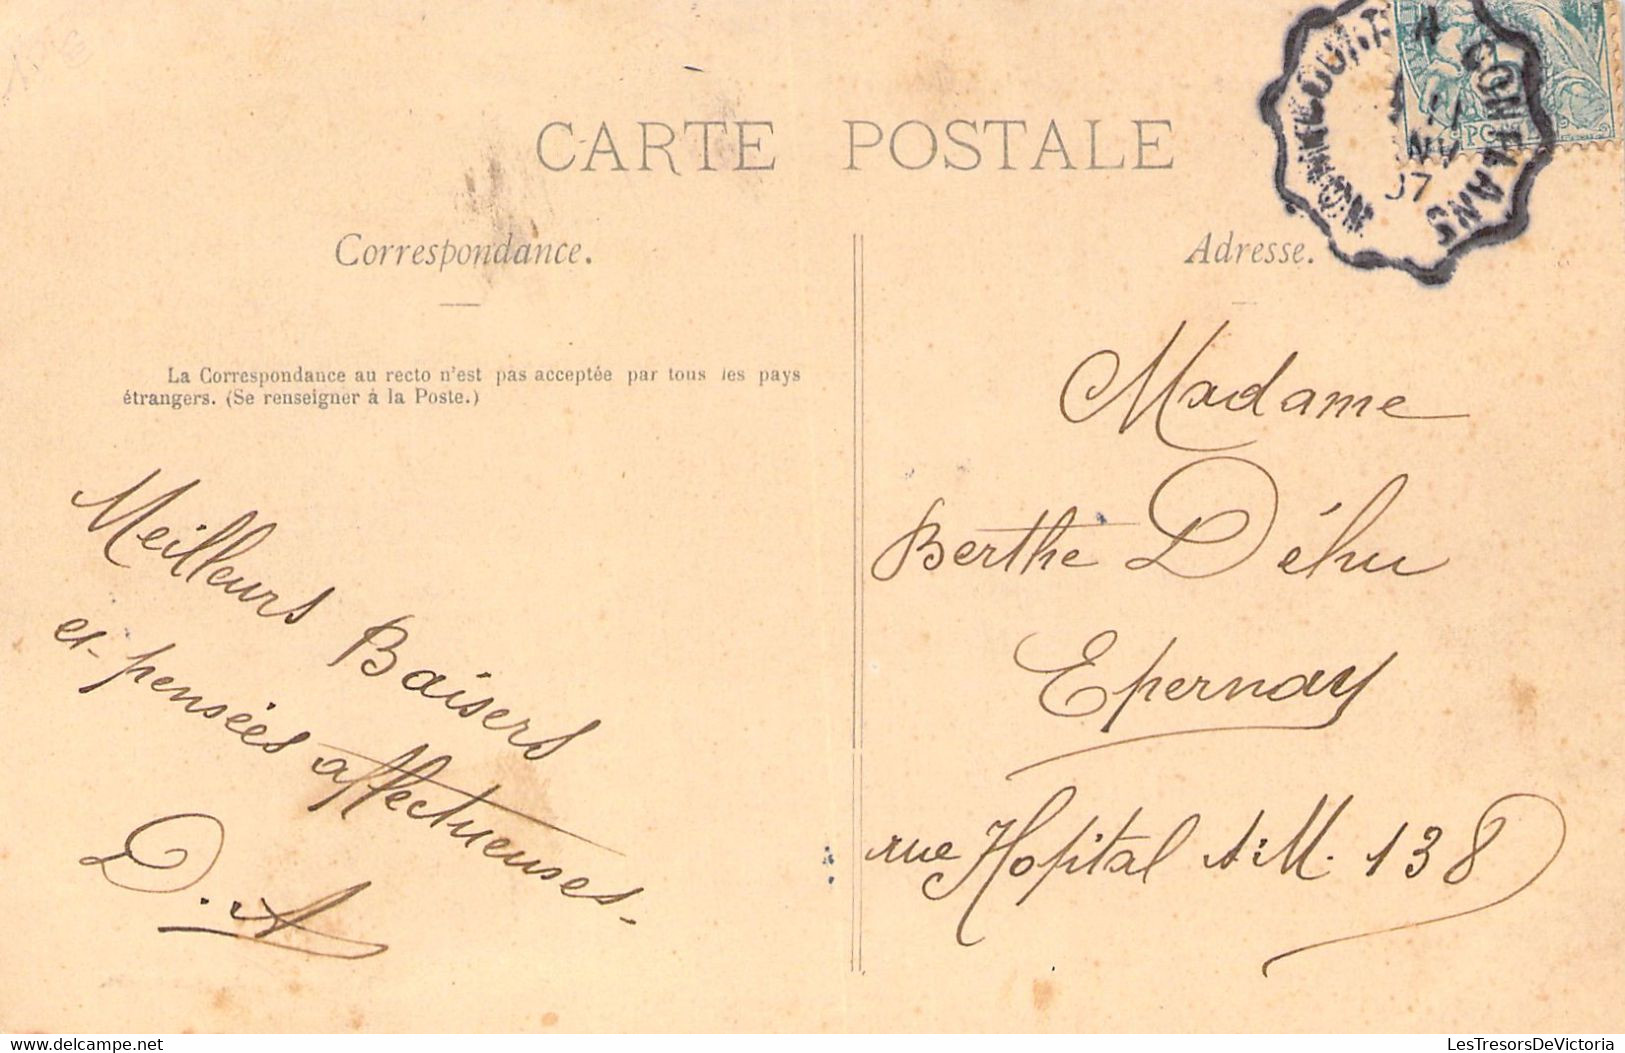 CARTE POSTALE
Correspondance.
Adresse.
La Correspondance au recto n'est pas acceptée par tous les pays
étrangers. (Se renseigner à la Poste.)
Meilleurs Baisers
et pensées affectueuses.
D. A
Madame
Berthe Déhu
Epernay
rue Hopital A.M. 138
A CONFLANS
07
LesTresorsDeVictoria.com